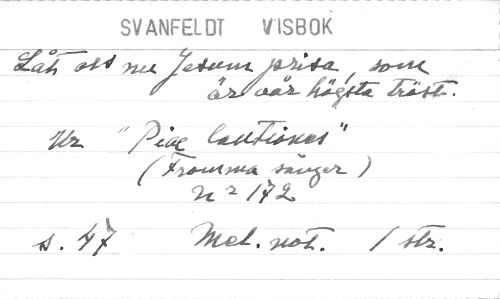 SVANFELDT VISBOK
Låt oss nu Jesum prisa, som
är vår högsta tröst.
Ur "Piae Cantiones"
(Fromma sånger)
Nr 172
s. 47 Mel. not. 1 str.